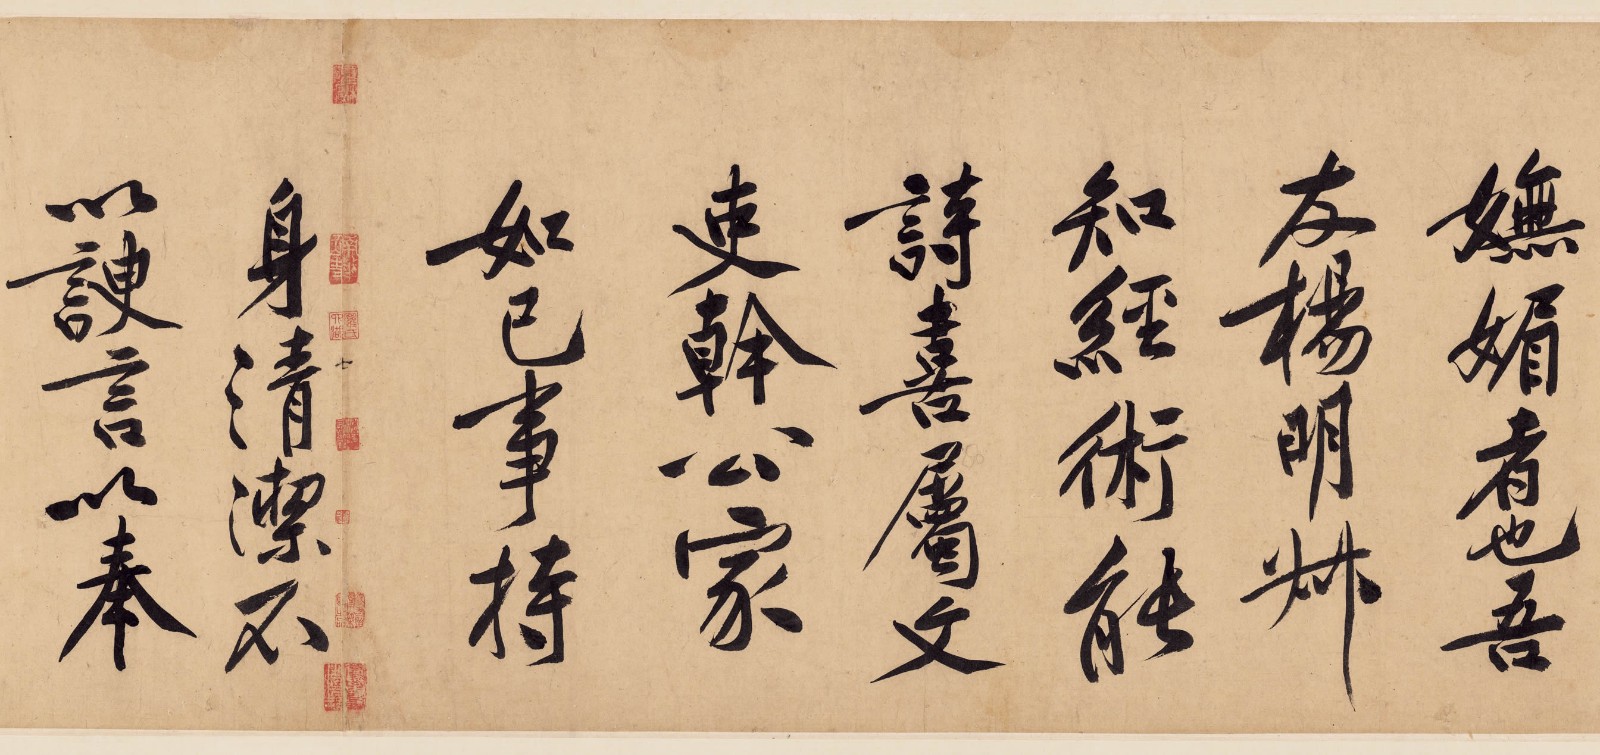 嫵媚者也吾
友楊明叔
知經術能
詩喜屬文
吏幹公家
如己事持
身清潔不
以諛言以奉